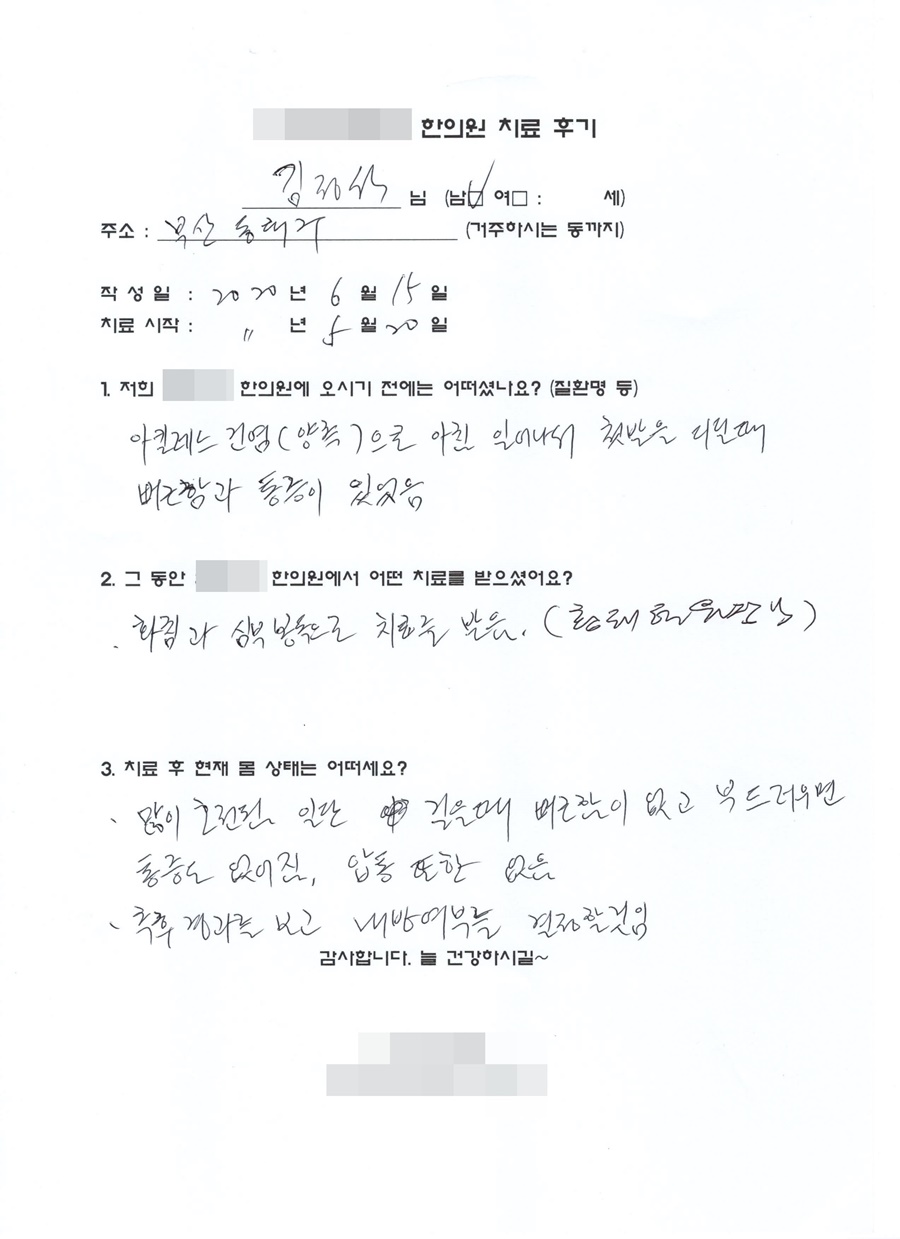 한의원 치료 후기
김정삭 님 (남☑ 여□ : 세)
주소 : 부산 동래구 (거주하시는 동까지)
작 성 일 : 2020 년 6 월 15 일
치료 시작 : 〃 년 5 월 20 일
1. 저희 한의원에 오시기 전에는 어떠셨나요? (질환명 등)
아킬레스 건염(양측)으로 아침 일어나서 첫발을 디딜때
뻐근함과 통증이 있었음
2. 그 동안 한의원에서 어떤 치료를 받으셨어요?
화침과 심부봉독으로 치료를 받음.
3. 치료 후 현재 몸 상태는 어떠세요?
많이 호전됨. 일단 걸을때 뻐근함이 없고 부드러우면
통증도 없어짐, 압통 또한 없음
추후 경과를 보고 내방여부를 결정할것임
감사합니다. 늘 건강하시길~